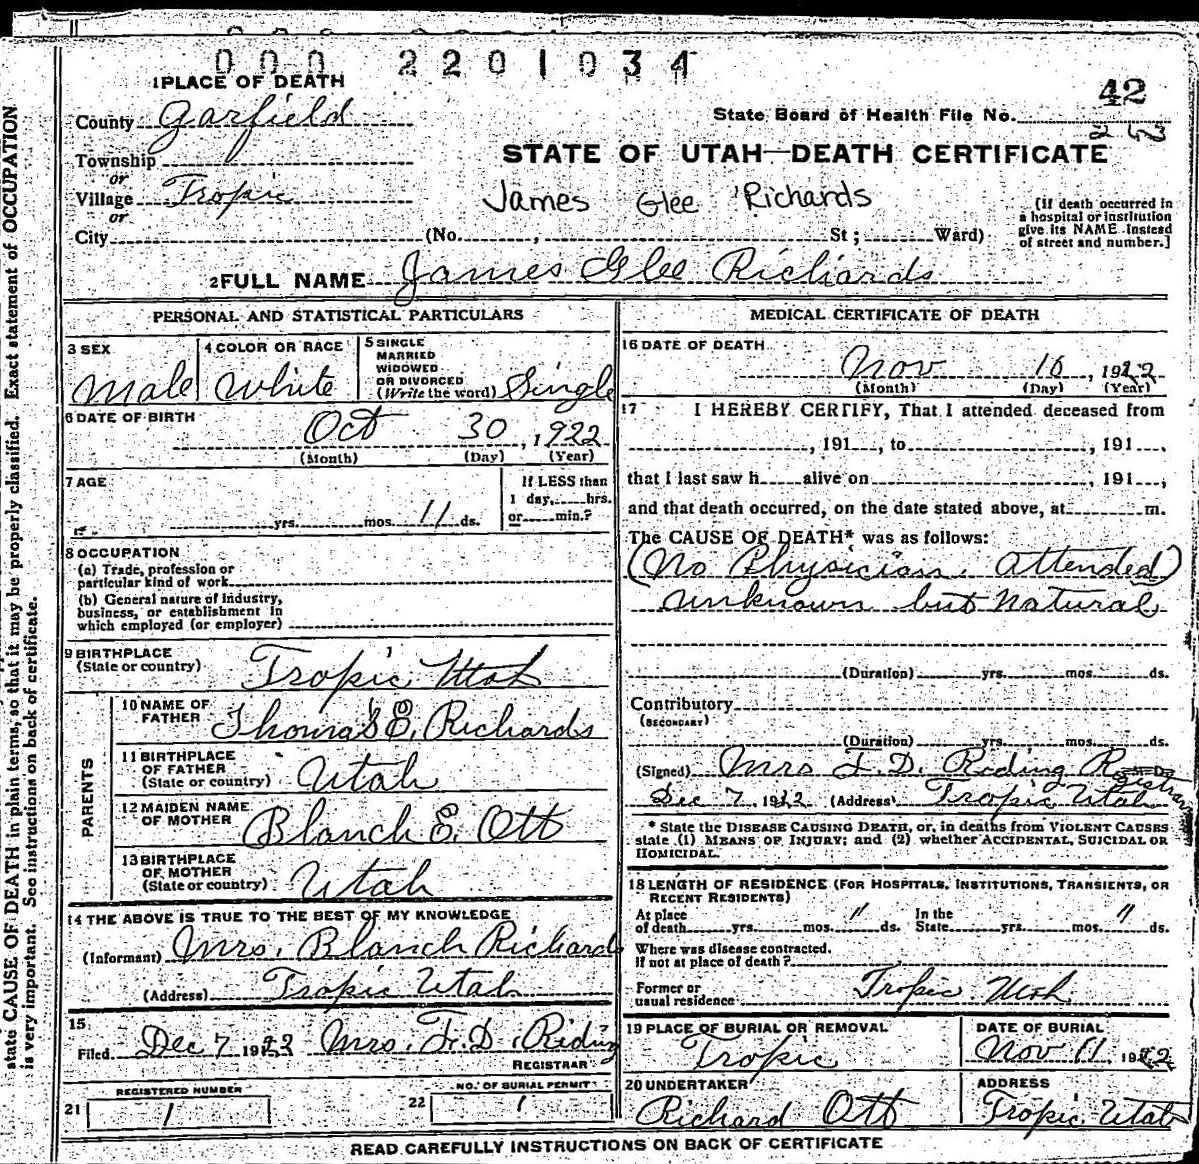 000 2201034
1 PLACE OF DEATH
County Garfield
Township
or
Village Tropic
or
City (No. , St; Ward)
42
State Board of Health File No.
STATE OF UTAH—DEATH CERTIFICATE
James Glee Richards
(If death occurred in
a hospital or institution
give its NAME instead
of street and number.]
2 FULL NAME James Glee Richards
PERSONAL AND STATISTICAL PARTICULARS
3 SEX Male
4 COLOR OR RACE White
5 SINGLE
MARRIED
WIDOWED
OR DIVORCED
(Write the word) Single
6 DATE OF BIRTH
Oct 30, 1922
(Month) (Day) (Year)
7 AGE
yrs. mos. 11 ds.
If LESS than
1 day, hrs.
or min.?
8 OCCUPATION
(a) Trade, profession or
particular kind of work
(b) General nature of industry,
business, or establishment in
which employed (or employer)
9 BIRTHPLACE
(State or country) Tropic Utah
PARENTS
10 NAME OF
FATHER Thomas E. Richards
11 BIRTHPLACE
OF FATHER
(State or country) Utah
12 MAIDEN NAME
OF MOTHER Blanch E. Ott
13 BIRTHPLACE
OF MOTHER
(State or country) Utah
14 THE ABOVE IS TRUE TO THE BEST OF MY KNOWLEDGE
(Informant) Mrs. Blanch Richards
(Address) Tropic Utah
15
Filed Dec 7 1922 Mrs. F. D. Riding
REGISTRAR
21 REGISTERED NUMBER 1
22 NO. OF BURIAL PERMIT 1
MEDICAL CERTIFICATE OF DEATH
16 DATE OF DEATH
Nov 10, 1922
(Month) (Day) (Year)
17 I HEREBY CERTIFY, That I attended deceased from
, 191 , to , 191 ,
that I last saw h alive on , 191 ,
and that death occurred, on the date stated above, at m.
The CAUSE OF DEATH* was as follows:
(No Physician attended)
unknown but natural
(Duration) yrs. mos. ds.
Contributory
(SECONDARY)
(Duration) yrs. mos. ds.
(Signed) Mrs F. D. Riding Registrar
Dec 7, 1922 (Address) Tropic Utah
* State the DISEASE CAUSING DEATH, or, in deaths from VIOLENT CAUSES
state (1) MEANS OF INJURY; and (2) whether ACCIDENTAL, SUICIDAL OR
HOMICIDAL.
18 LENGTH OF RESIDENCE (FOR HOSPITALS, INSTITUTIONS, TRANSIENTS, OR
RECENT RESIDENTS)
At place
of death yrs. mos. 11 ds. In the
State yrs. mos. 11 ds.
Where was disease contracted.
if not at place of death?
Former or
usual residence Tropic Utah
19 PLACE OF BURIAL OR REMOVAL
Tropic
DATE OF BURIAL
Nov 11, 1922
20 UNDERTAKER
Richard Ott
ADDRESS
Tropic Utah
READ CAREFULLY INSTRUCTIONS ON BACK OF CERTIFICATE
state CAUSE OF DEATH in plain terms, so that it may be properly classified. Exact statement of OCCUPATION
is very important. See instructions on back of certificate.